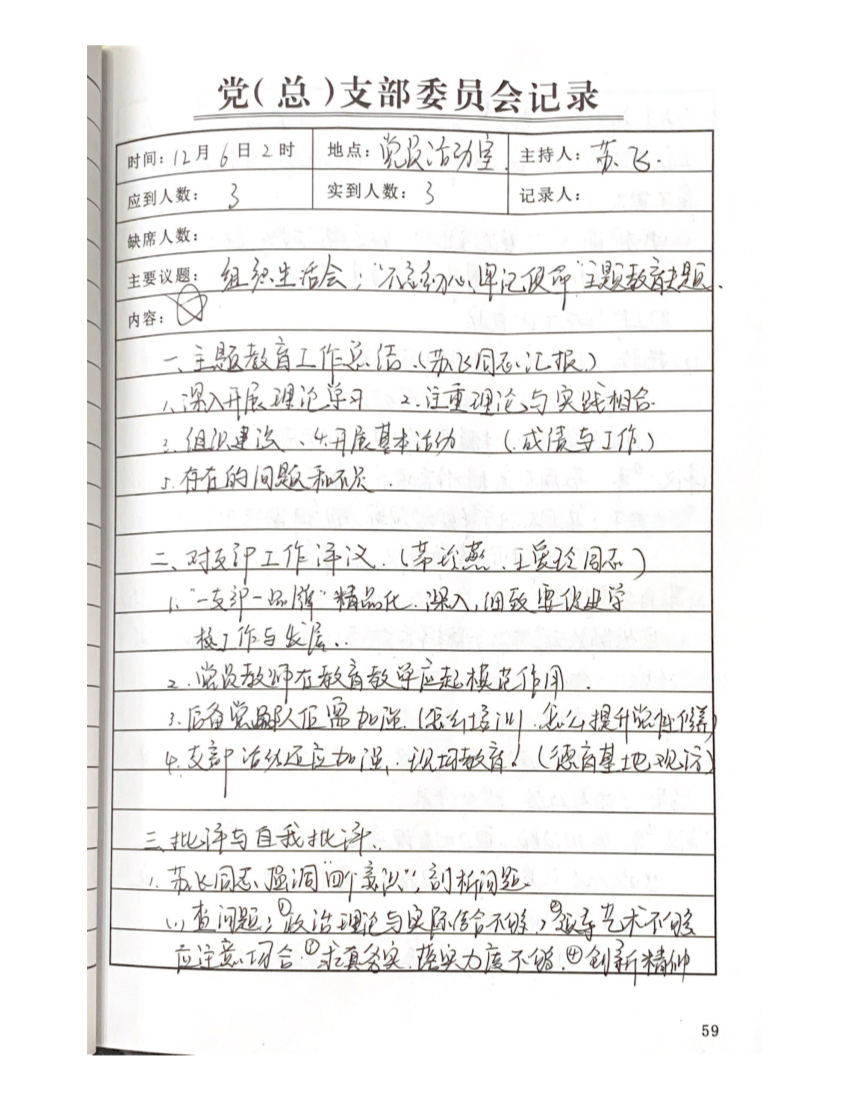 党(总)支部委员会记录
时间:12月6日2时 地点:党员活动室. 主持人:苏飞.
应到人数: 3 实到人数: 3 记录人:
缺席人数:
主要议题: 组织生活会;"不忘初心、牢记使命"主题教育专题.
内容:
一、主题教育工作总结.(苏飞同志汇报.)
1、深入开展理论学习 2.注重理论与实践相合.
3.组织建设、4.开展基本活动 (成绩与工作.)
5.存在的问题和不足.
二、对支部工作评议.(苏珍燕、王爱玲同志)
1."一支部一品牌"精品化.深入,细致要促进学
校工作与发展..
2.党员教师在教育教学应起模范作用.
3.后备党员队伍需加强.(怎么培训.怎么提升党性修养)
4.支部活动还应加强,现场教育.(德育基地观访)
三、批评与自我批评.
1.苏飞同志.强调"四个意识".剖析问题.
(1)查问题:①政治理论与实际结合不够,②领导艺术不够
应注意场合.①求真务实.落实力度不够.④创新精神
59